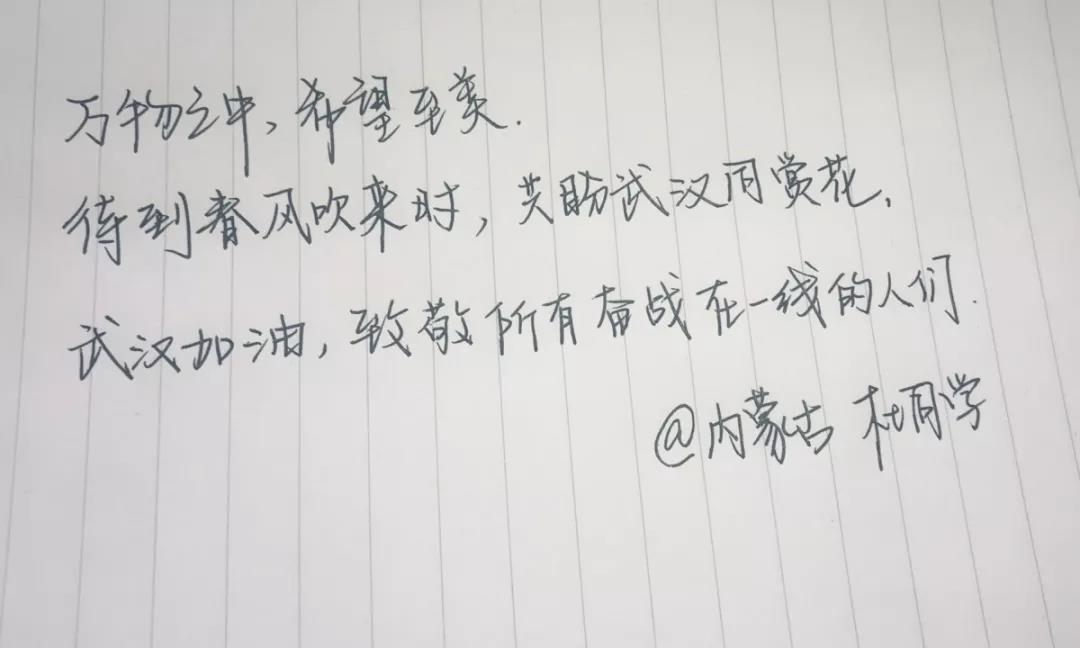 万物之中,希望至美.
待到春风吹来时,共盼武汉同赏花.
武汉加油,致敬所有奋战在一线的人们.
@内蒙古 杜同学